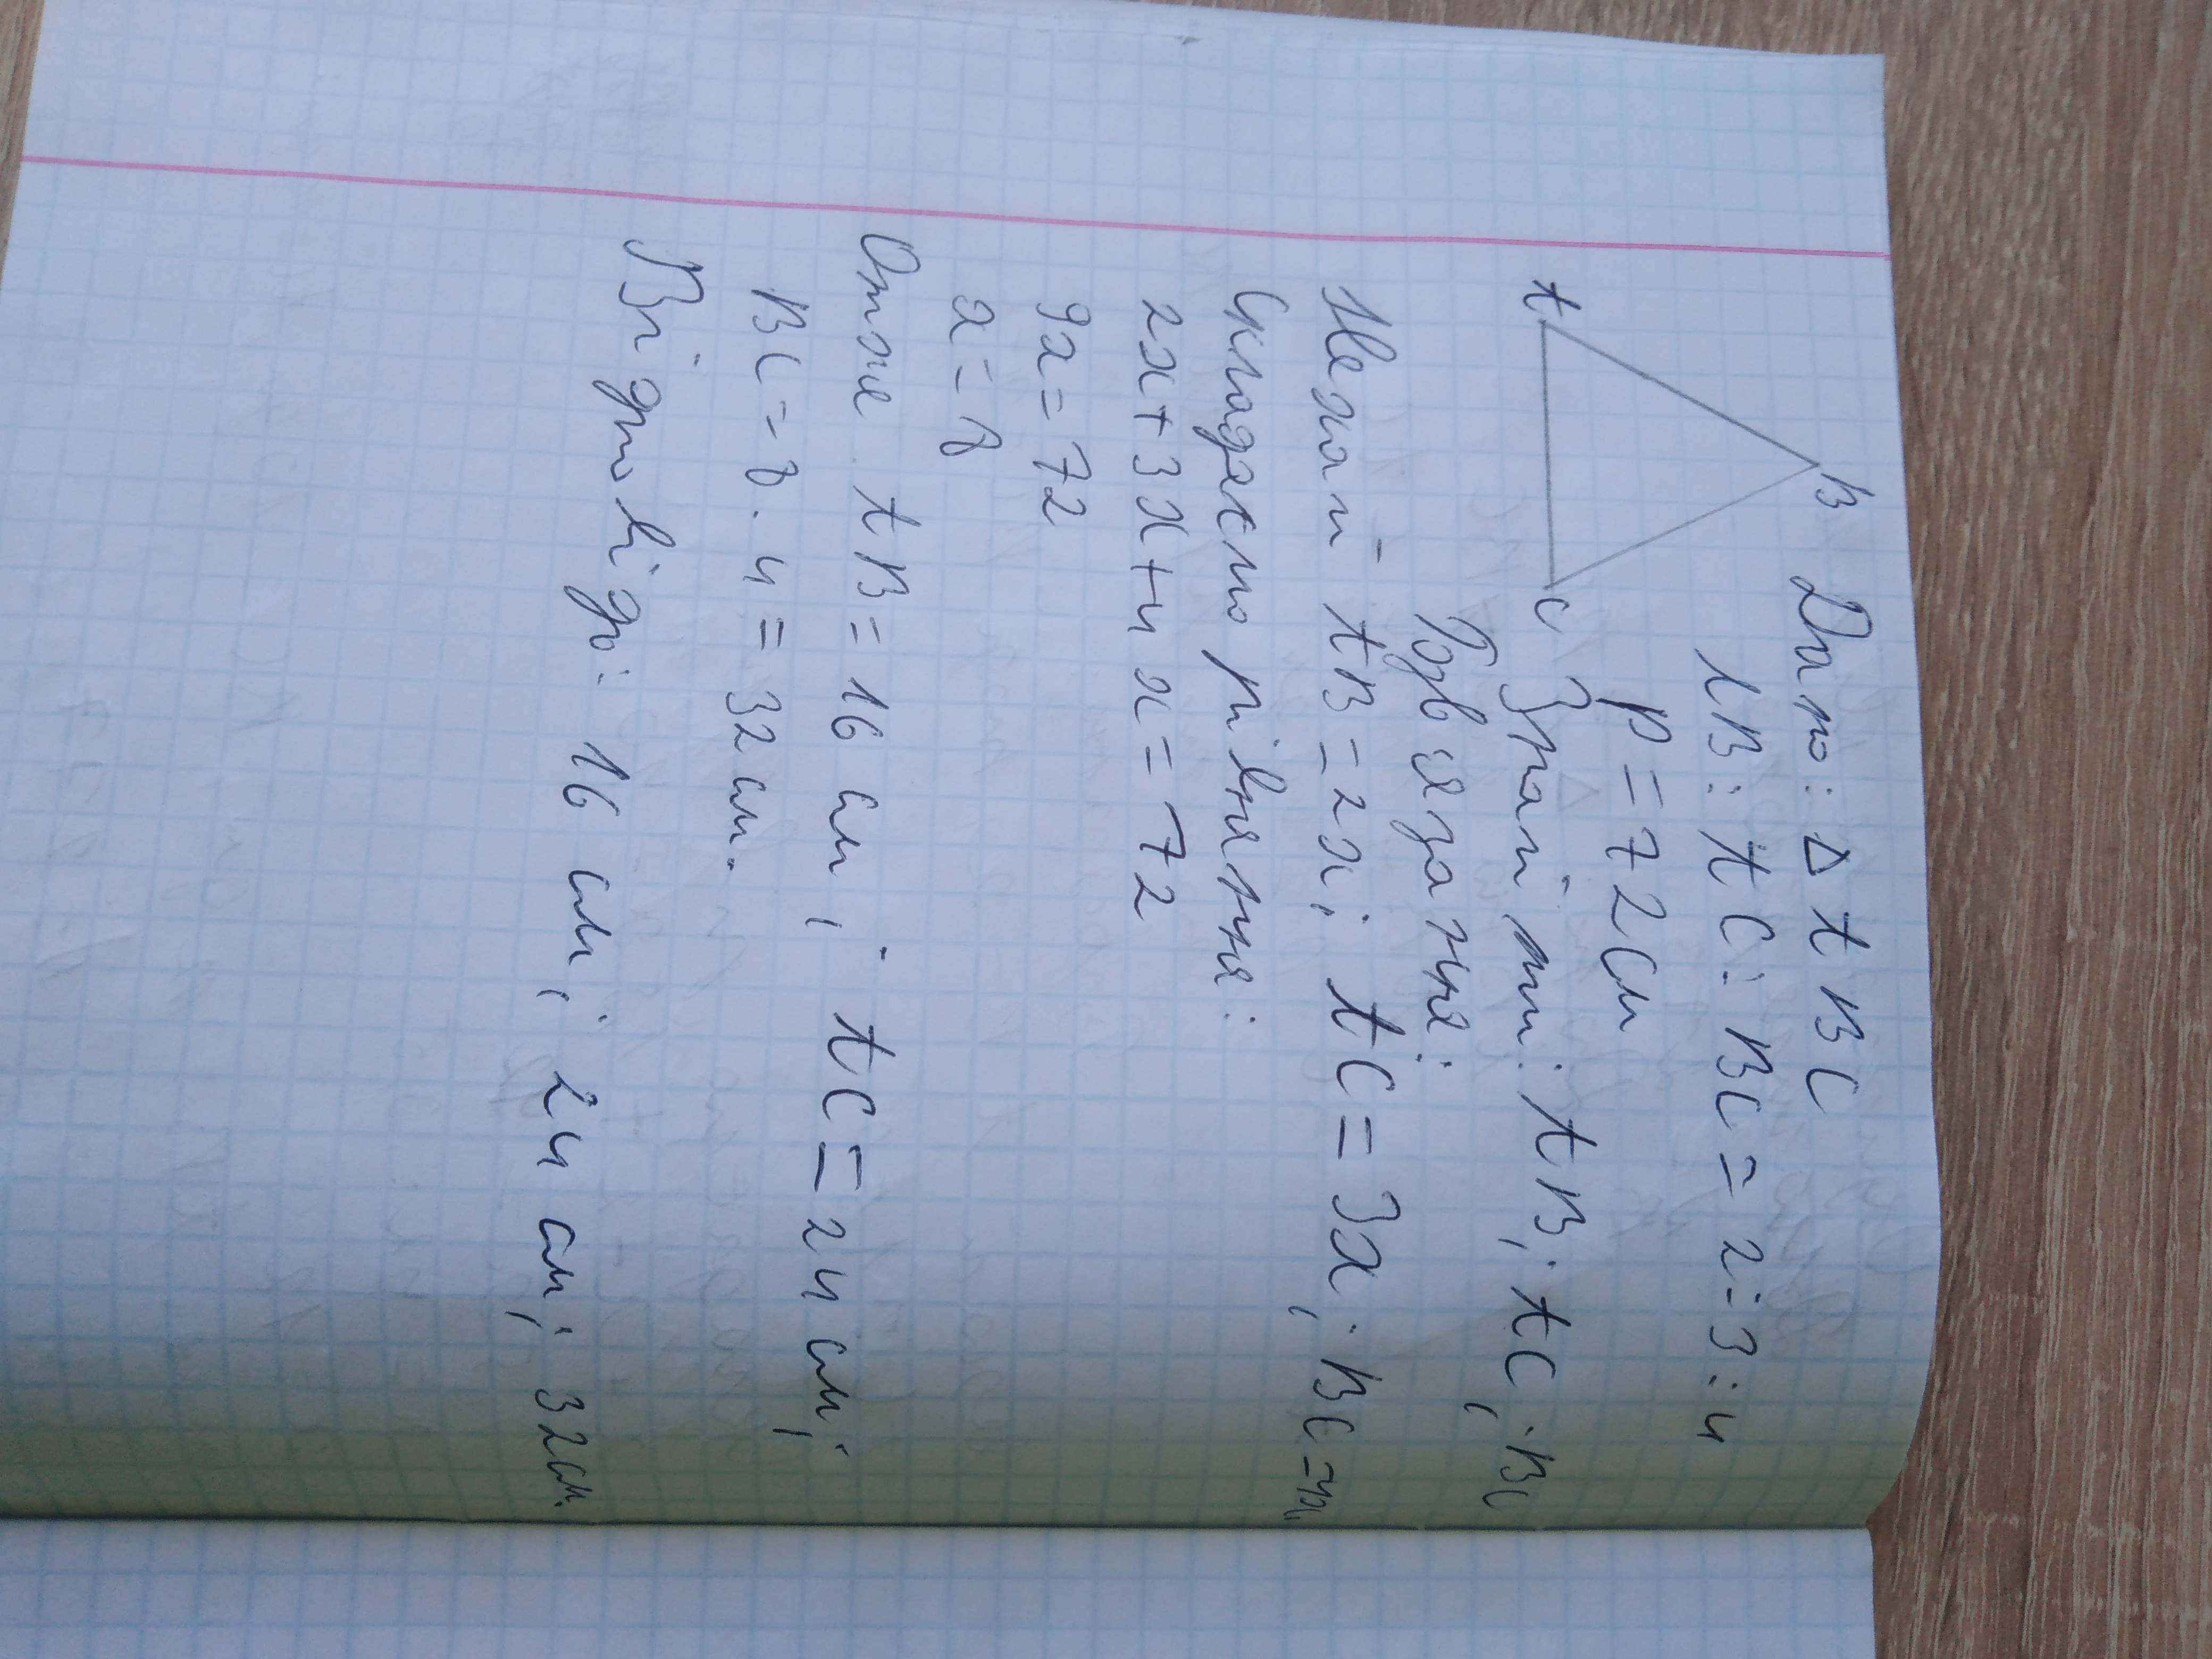 A
B
C
Дано: Δ ABC
AB : AC : BC = 2 : 3 : 4
P = 72 см
Знайти: AB; AC; BC
Розв'язання:
Нехай AB = 2x; AC = 3x; BC = 4x
Складемо рівняння:
2x + 3x + 4x = 72
9x = 72
x = 8
Отже AB = 16 см; AC = 24 см;
BC = 8 · 4 = 32 см.
Відповідь: 16 см; 24 см; 32 см.